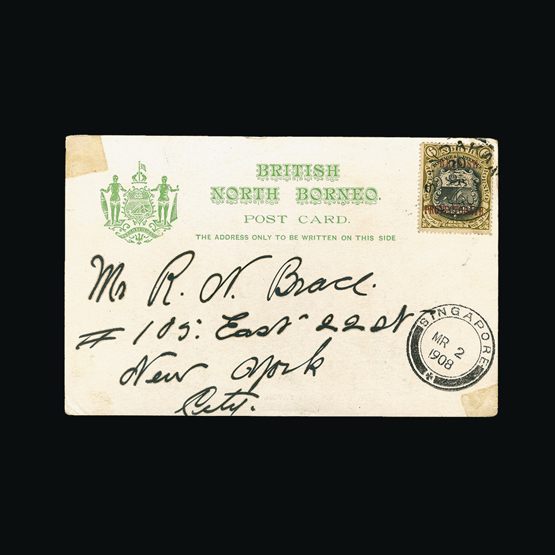 BRITISH
NORTH BORNEO.
POST CARD.
THE ADDRESS ONLY TO BE WRITTEN ON THIS SIDE
Mr R. N. Brace.
# 105. East 22 St
New York
City.
SINGAPORE
MR 2
1908